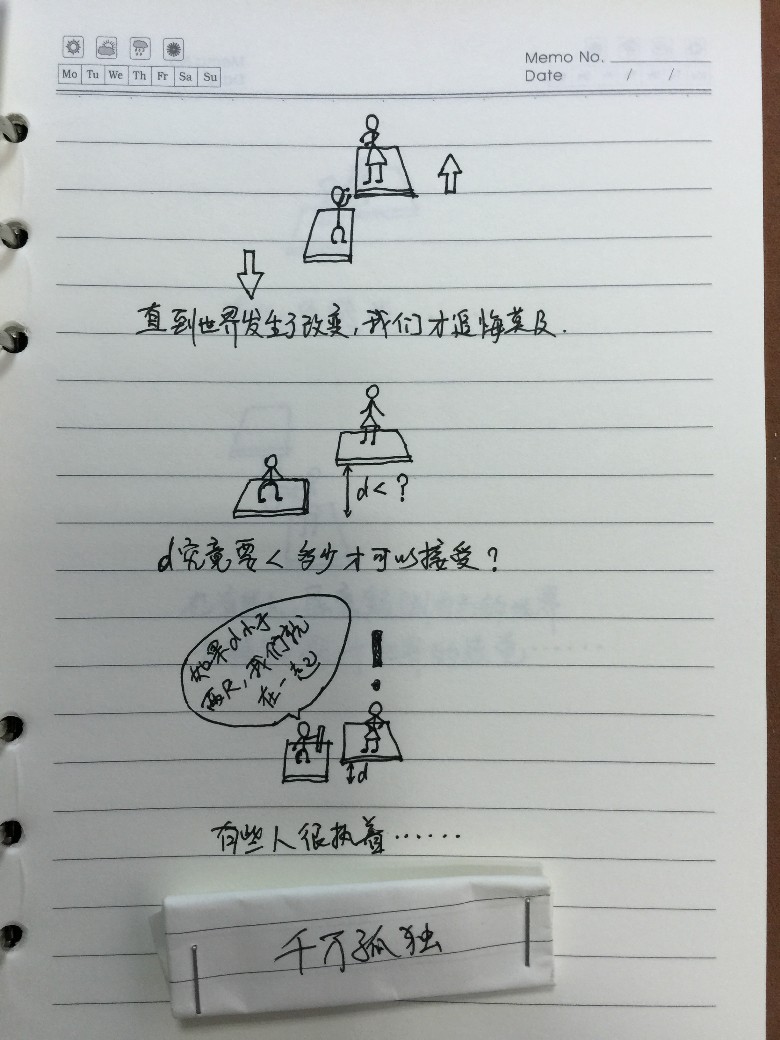 Memo No.
Mo Tu We Th Fr Sa Su
Date / /
直到世界发生了改变,我们才追悔莫及.
d< ?
d究竟要<多少才可以接受?
如果d小于
两尺,我们就
在一起
!
d
有些人很执着……
千万孤独